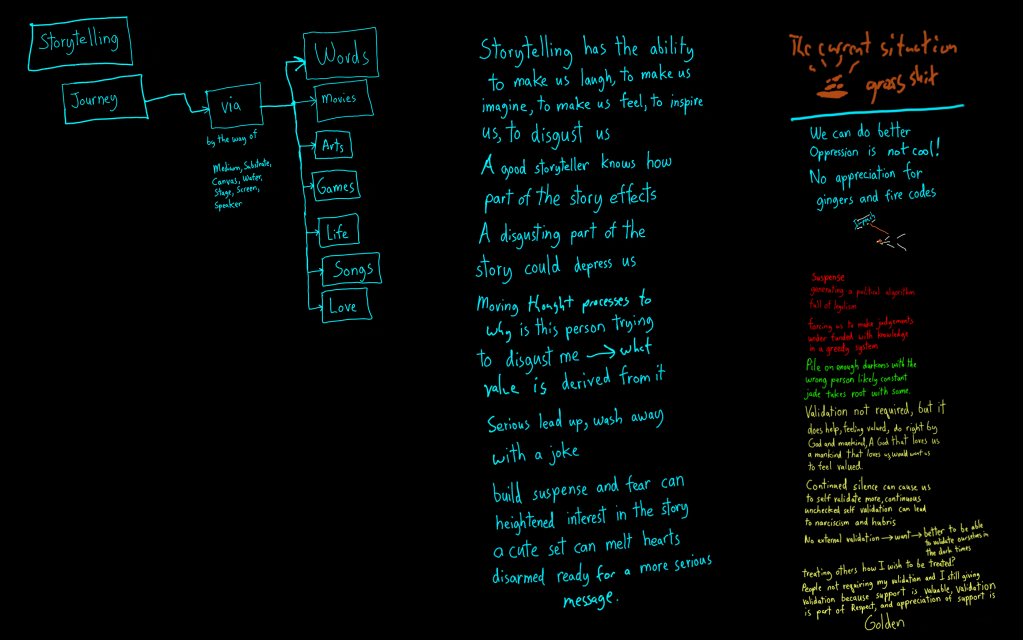 Storytelling
Journey
via
by the way of
Medium, Substrate,
Canvas, Water,
Stage, Screen,
Speaker
Words
Movies
Arts
Games
Life
Songs
Love
Storytelling has the ability
to make us laugh, to make us
imagine, to make us feel, to inspire
us, to disgust us
A good storyteller knows how
part of the story effects
A disgusting part of the
story could depress us
Moving thought processes to
why is this person trying
to disgust me → what
value is derived from it
Serious lead up, wash away
with a joke
build suspense and fear can
heightened interest in the story
a cute set can melt hearts
disarmed ready for a more serious
message.
The current situation
gross shit
We can do better
Oppression is not cool!
No appreciation for
gingers and fire codes
Suspense
generating a political algorithm
full of legalism
forcing us to make judgements
under funded with knowledge
in a greedy system
Pile on enough darkness with the
wrong person likely constant
jade takes root with some.
Validation not required, but it
does help, feeling valued, do right by
God and mankind, A God that loves us
a mankind that loves us, would want us
to feel valued.
Continued silence can cause us
to self validate more, continuous
unchecked self validation can lead
to narcisism and hubris
No external validation → want → better to be able
to validate ourselves in
the dark times
treating others how I wish to be treated?
People not requiring my validation and I still giving
validation because support is valuable, validation
is part of Respect, and appreciation of support is
Golden